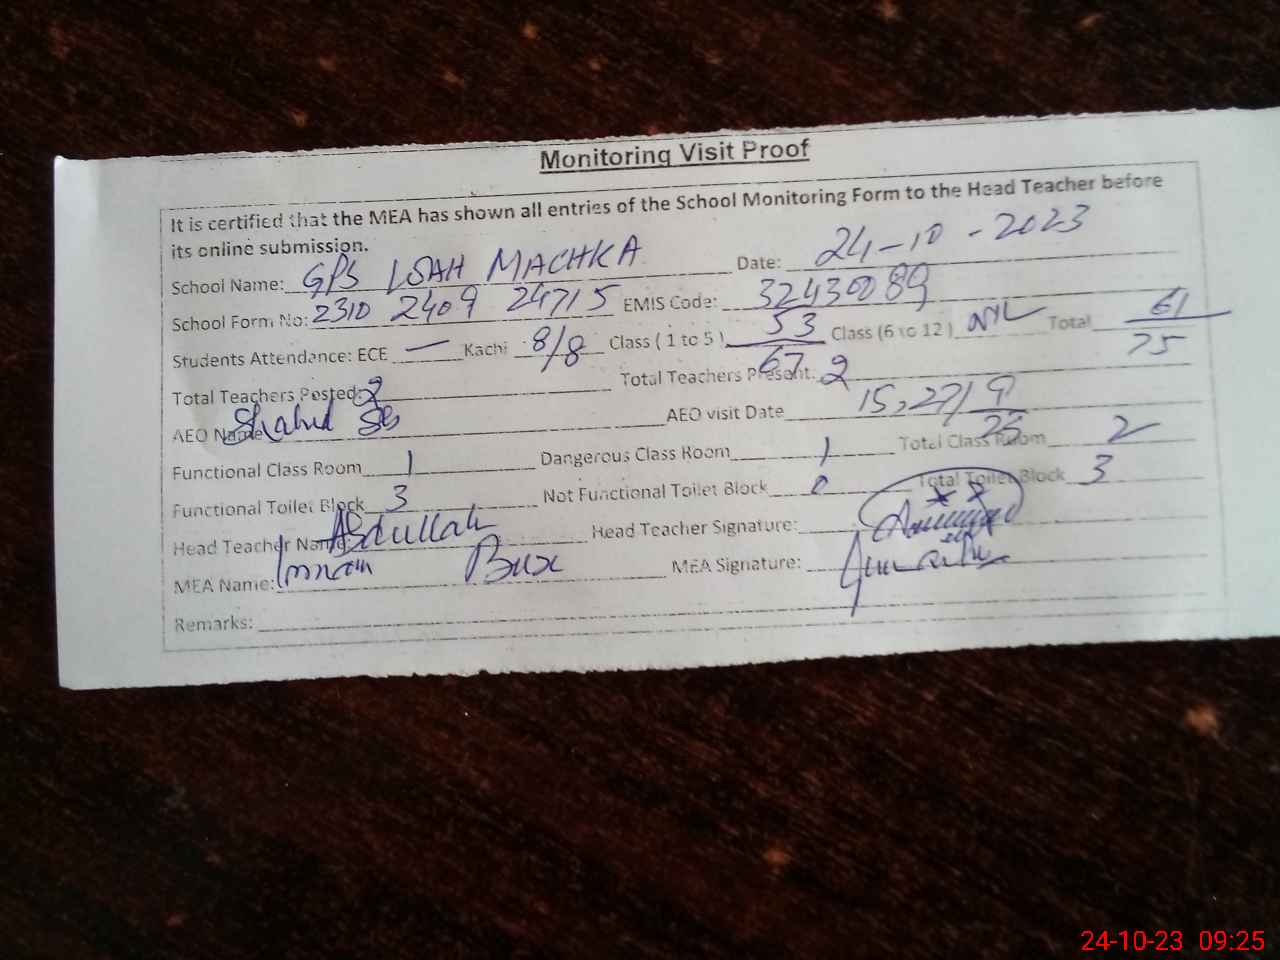 Monitoring Visit Proof
It is certified that the MEA has shown all entries of the School Monitoring Form to the Head Teacher before
its online submission.
School Name: GPS LSAH MACHKA Date: 24-10-2023
School Form No: 2310 2409 24715 EMIS Code: 32430089
Students Attendance: ECE — Kachi 8/8 Class (1 to 5) 53/67 Class (6 to 12) NIL Total 61/75
Total Teachers Posted: 2 Total Teachers Present: 2
AEO Name Shahid AEO visit Date 15,27/9/23
Functional Class Room 1 Dangerous Class Room 1 Total Class Room 2
Functional Toilet Block 3 Not Functional Toilet Block 0 Total Toilet Block 3
Head Teacher Name Abdullah Head Teacher Signature:
MEA Name: Imran Bux MEA Signature:
Remarks:
24-10-23 09:25